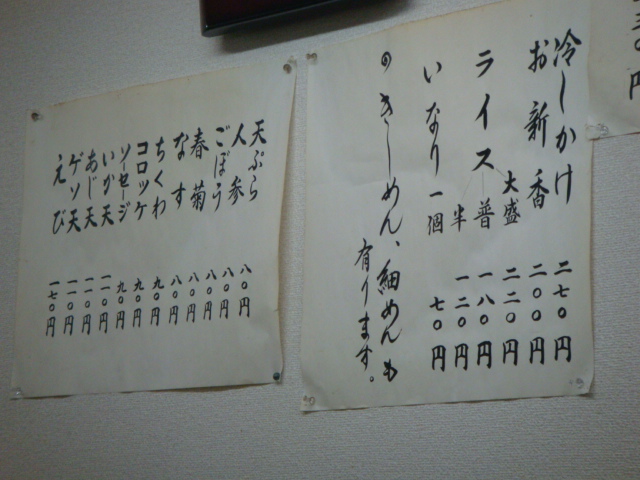 三〇円
冷しかけ 二七〇円
お新香 二〇〇円
ライス 大盛 二二〇円
普 一八〇円
半 一二〇円
いなり一個 七〇円
のきしめん、細めんも有ります。
天ぷら
人参 八〇円
ごぼう 八〇円
春菊 八〇円
なす 八〇円
ちくわ 九〇円
コロッケ 九〇円
ソセージ 九〇円
いか天 一一〇円
あじ天 一一〇円
ゲソ天 一一〇円
えび 一七〇円